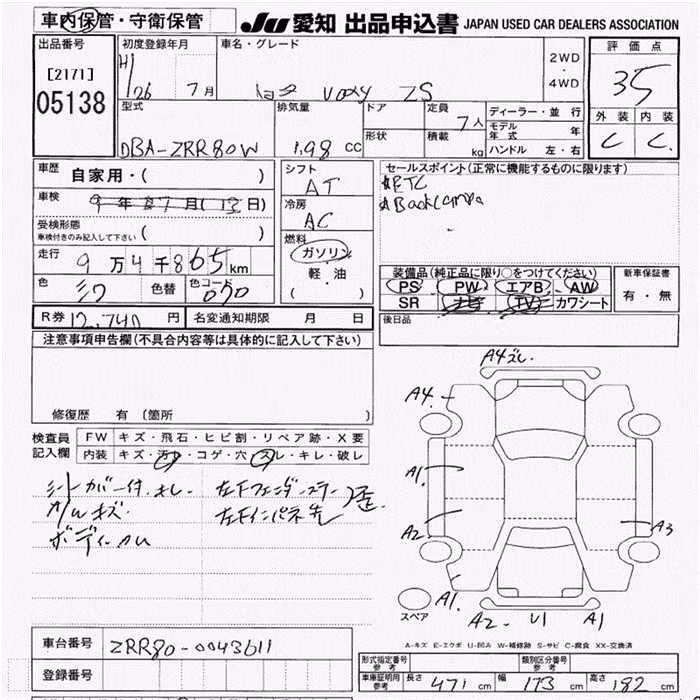 車内保管・守衛保管 JU 愛知 出品申込書 JAPAN USED CAR DEALERS ASSOCIATION
出品番号 初度登録年月 車名・グレード 2WD・4WD 評価点
[2171] H 26 7月 トヨタ VOXY ZS 35
05138 型式 排気量 ドア 定員 ディーラー・並行 外装 内装
DBA-ZRR80W 1.98 CC 形状 7人 積載 kg モデル年式 年 C C
ハンドル 左・右
車歴 自家用・( ) シフト AT セールスポイント(正常に機能するものに限ります)
車検 9年27月(13日) 冷房 AC ☆ETC
受検形態 ( ) ☆Back camera
車検付きのみ記入して下さい
走行 9万4千865km 燃料 ガソリン 軽・油 ( )
装備品(純正品に限り○をつけてください) 新車保証書
色 シロ 色替 色コード 070 PS PW エアB AW 有・無
SR ナビ TV カワシート
R券 12,740円 名変通知期限 月 日 後日品
注意事項申告欄(不具合内容等は具体的に記入して下さい)
修復歴 有 (箇所 )
A4ズレ
A4
検査員 FW キズ・飛石・ヒビ割・リペア跡・X要
記入欄 内装 キズ・汚れ・コゲ・穴・スレ・キレ・破レ
シートカバー付
A/Wキズ
A1
A2 A3
A1
スペア
A2 U1 A1
A-キズ E-エクボ U-凹み W-補修跡 S-サビ C-腐食 XX-交換済
車台番号 ZRR80-0043611
登録番号
形式指定番号 参考 類別区分番号 参考
車庫証明用 参考 長さ 471 cm 幅 173 cm 高さ 182 cm